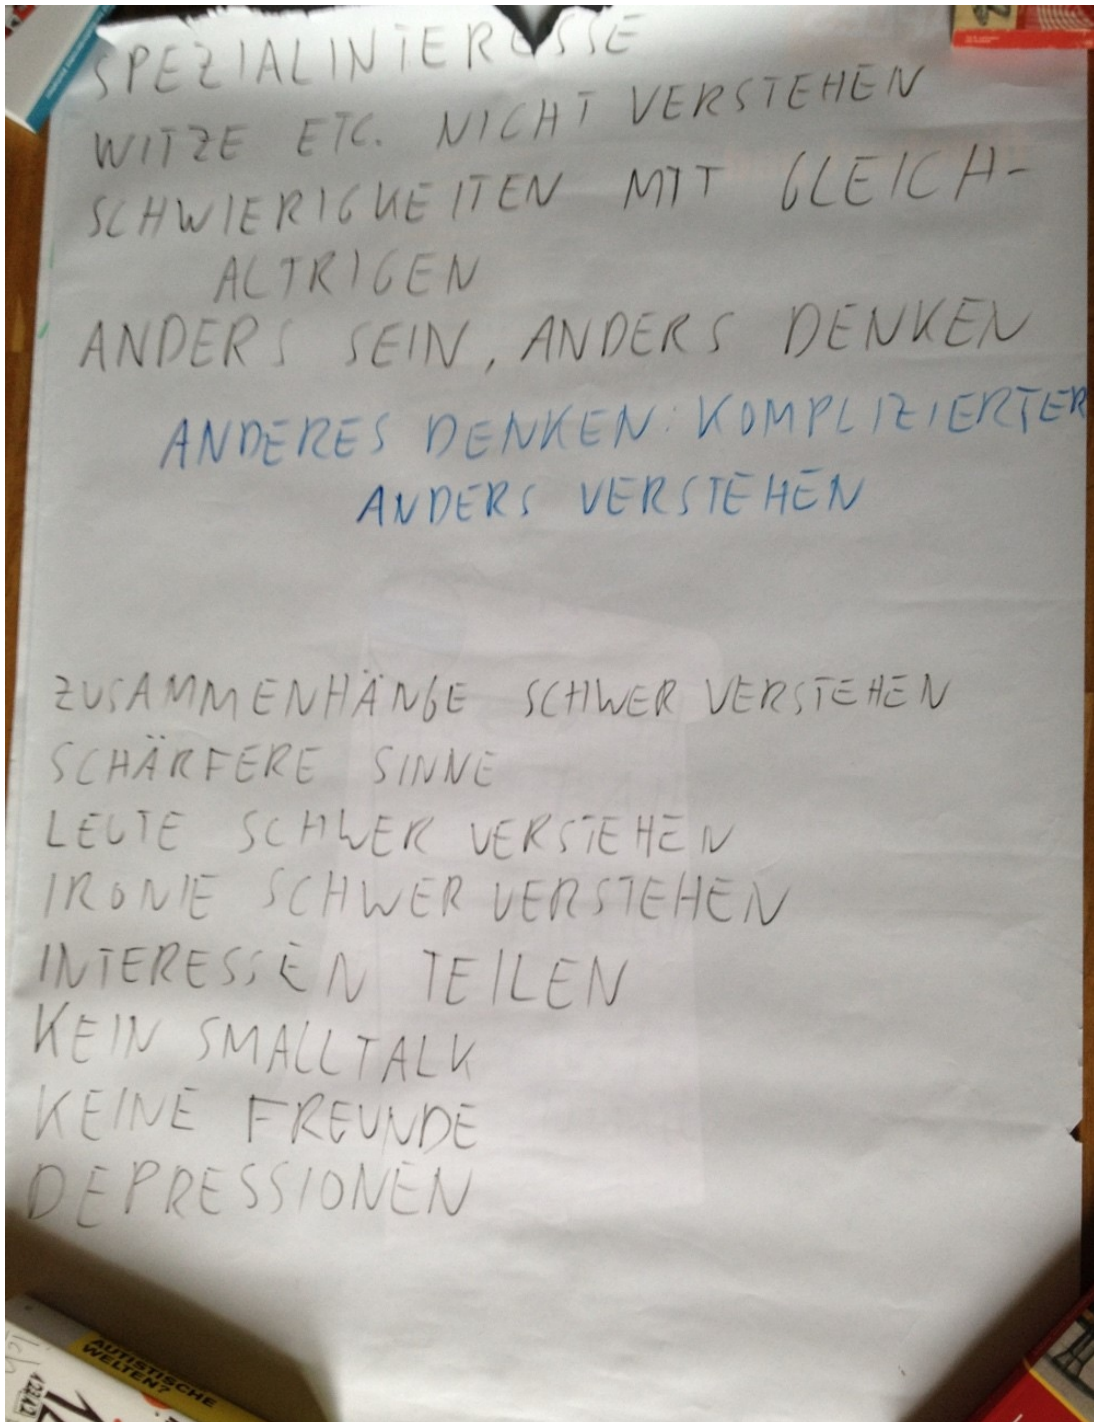 SPEZIALINTERESSE
WITZE ETC. NICHT VERSTEHEN
SCHWIERIGKEITEN MIT GLEICH-
ALTRIGEN
ANDERS SEIN, ANDERS DENKEN
ANDERES DENKEN: KOMPLIZIERTER
ANDERS VERSTEHEN
ZUSAMMENHÄNGE SCHWER VERSTEHEN
SCHÄRFERE SINNE
LEUTE SCHWER VERSTEHEN
IRONIE SCHWER VERSTEHEN
INTERESSEN TEILEN
KEIN SMALLTALK
KEINE FREUNDE
DEPRESSIONEN
AUTISTISCHE
WELTEN?